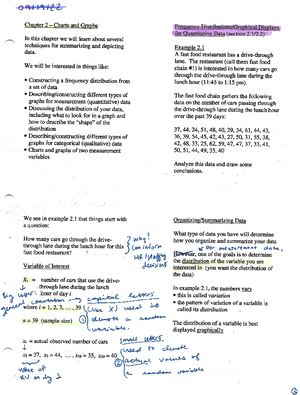 09/19/22
Chapter 2 – Charts and Graphs
In this chapter we will learn about several
techniques for summarizing and depicting
data.
We will be interested in things like:
• Constructing a frequency distribution from
a set of data
• Describing/constructing different types of
graphs for measurement (quantitative) data
• Discussing the distribution of your data,
including what to look for in a graph and
how to describe the "shape" of the
distribution
• Describing/constructing different types of
graphs for categorical (qualitative) data
• Charts and graphs of two measurement
variables
Frequency Distributions/Graphical Displays
for Quantitative Data (section 2.1/2.2)
Example 2.1
A fast food restaurant has a drive-through
lane. The restaurant (call them fast food
chain #1) is interested in how many cars go
through the drive-through lane during the
lunch hour (11:45 to 1:15 pm).
The fast food chain gathers the following
data on the number of cars passing through
the drive-through lane during the lunch hour
over the past 39 days:
37, 44, 24, 51, 48, 40, 29, 34, 61, 44, 43,
36, 39, 54, 45, 42, 43, 27, 50, 31, 55, 38,
42, 48, 33, 25, 62, 59, 47, 47, 37, 33, 41,
50, 51, 44, 49, 35, 40
Analyze this data and draw some
conclusions.
We see in example 2.1 that things start with
a question:
How many cars go through the drive-
through lane during the lunch hour for this
fast food restaurant?
why?
can inform
decisions
Variable of Interest
Xᵢ = number of cars that use the drive-
through lane during the lunch
hour of day i
where i = 1, 2, 3, ... , 39
n = 39 (sample size)
capital letters
(use X) used to
denote a random
variable.
xᵢ = actual observed number of cars
x₁ = 37, x₂ = 44, ..., x₃₈ = 35, x₃₉ = 40
small letters
used to denote
actual values of
a random variable
value of
Organizing/Summarizing Data
What type of data you have will determine
how you organize and summarize your data
for measurement data,
However, one of the goals is to determine
the distribution of the variable you are
interested in. (you want the distribution of
the data)
In example 2.1, the numbers vary
• this is called variation
• the pattern of variation of a variable is
called its distribution
The distribution of a variable is best
displayed graphically